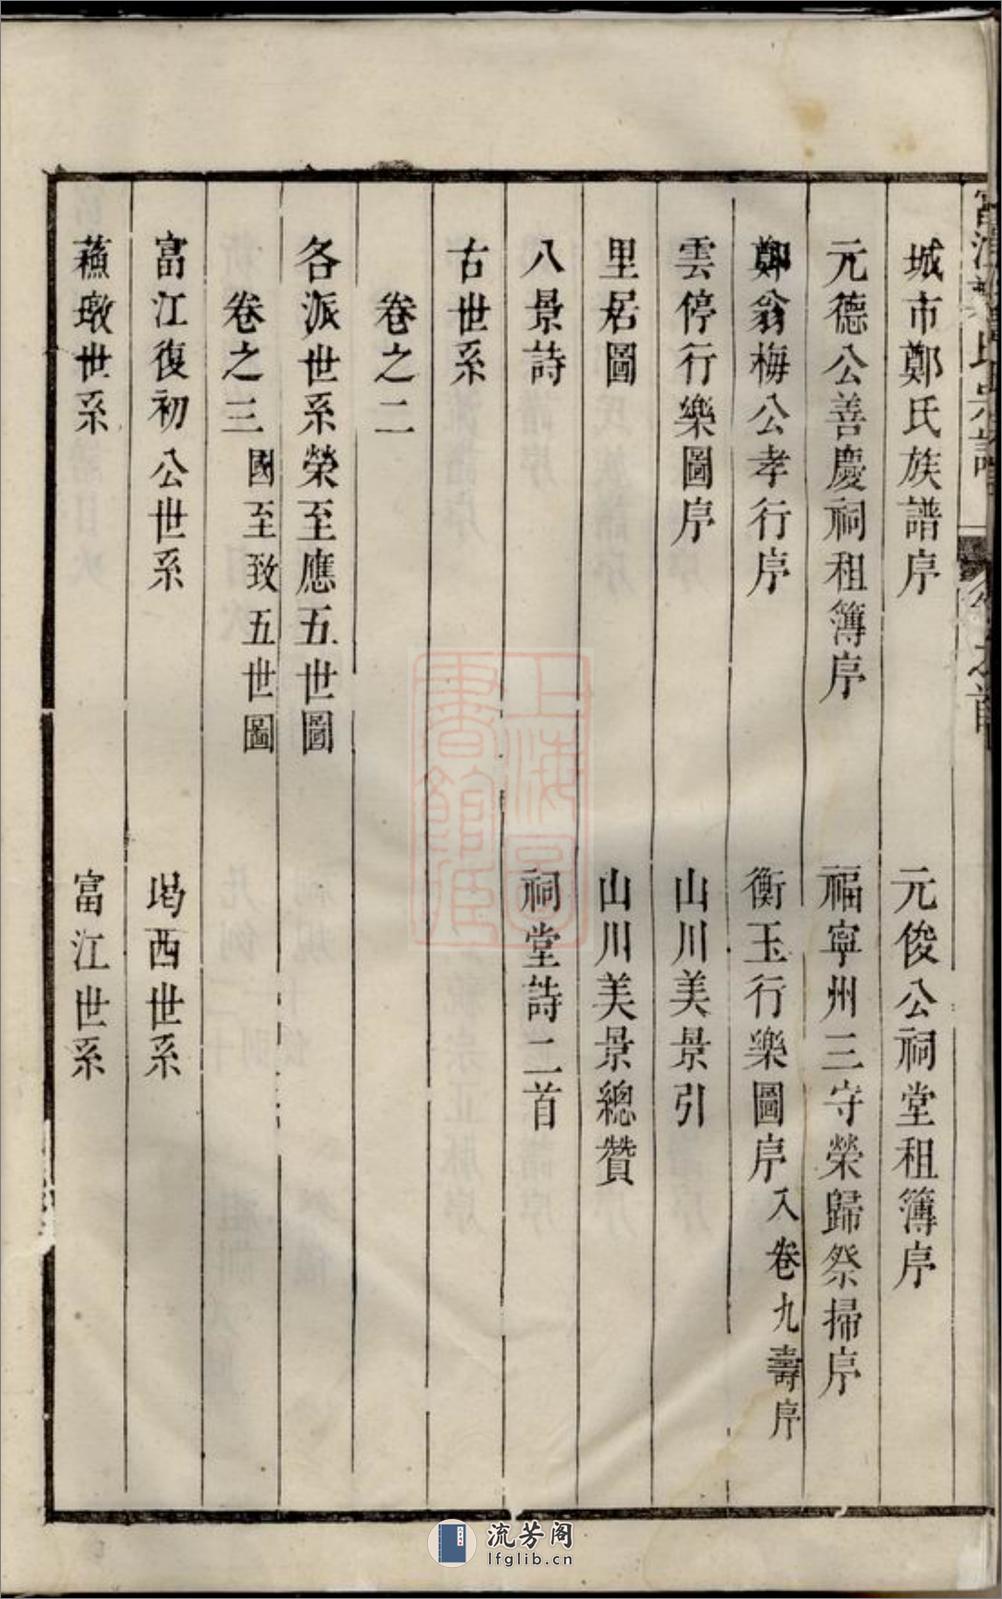 富江鄭氏宗譜 卷之首
城市鄭氏族譜序 元俊公祠堂租簿序
元德公善慶祠租簿序 福寧州三守榮歸祭掃序
鄭翁梅公孝行序 衡玉行樂圖序 入卷九壽序
雲停行樂圖序 山川美景引
里居圖 山川美景總贊
八景詩 祠堂詩二首
古世系
卷之二
各派世系榮至應五世圖
國至致五世圖
卷之三
富江復初公世系 坞西世系
蘓墩世系 富江世系
上海圖書館藏
流芳阁
lfglib.cn